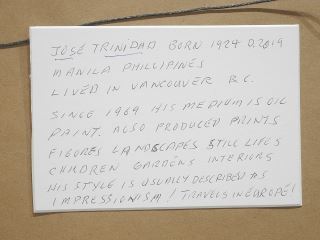 JOSE TRINIDAD BORN 1924 D.2019
MANILA PHILLIPINES
LIVED IN VANCOUVER B.C.
SINCE 1969 HIS MEDIUM IS OIL
PAINT. ALSO PRODUCED PRINTS
FIGURES LANDSCAPES STILL LIFES
CHILDREN GARDENS INTERIORS
HIS STYLE IS USUALLY DESCRIBED AS
IMPRESSIONISM / TRAVELS IN EUROPE /